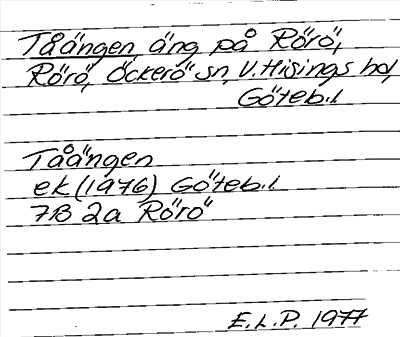 Tåängen, äng på Rörö,
Rörö, Öckerö sn, V. Hisings hd,
Göteb. l.
Tåängen
ek (1976) Göteb. l.
7B 2a Rörö
E.L.P. 1977